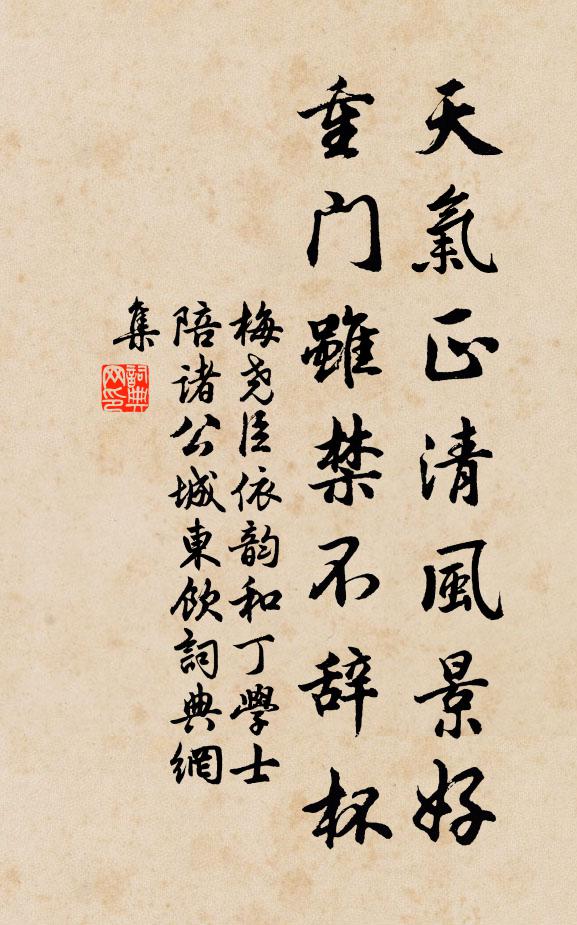 天氣正清風景好
重門雖禁不辞杯
梅尧臣依韵和丁學士
陪诸公城東飲詞典網
集
詞典網印